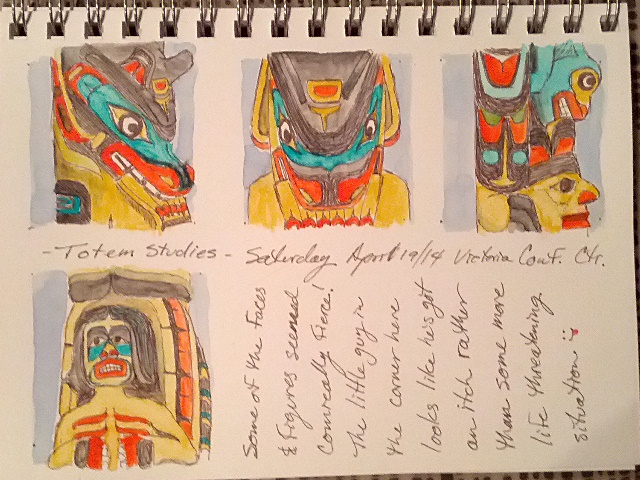 - Totem Studies - Saturday April 19/14 Victoria Conf. Ctr.
Some of the faces
& figures seemed
comically fierce!
The little guy in
the corner here
looks like he's got
an itch rather
than some more
life threatening
situation :)